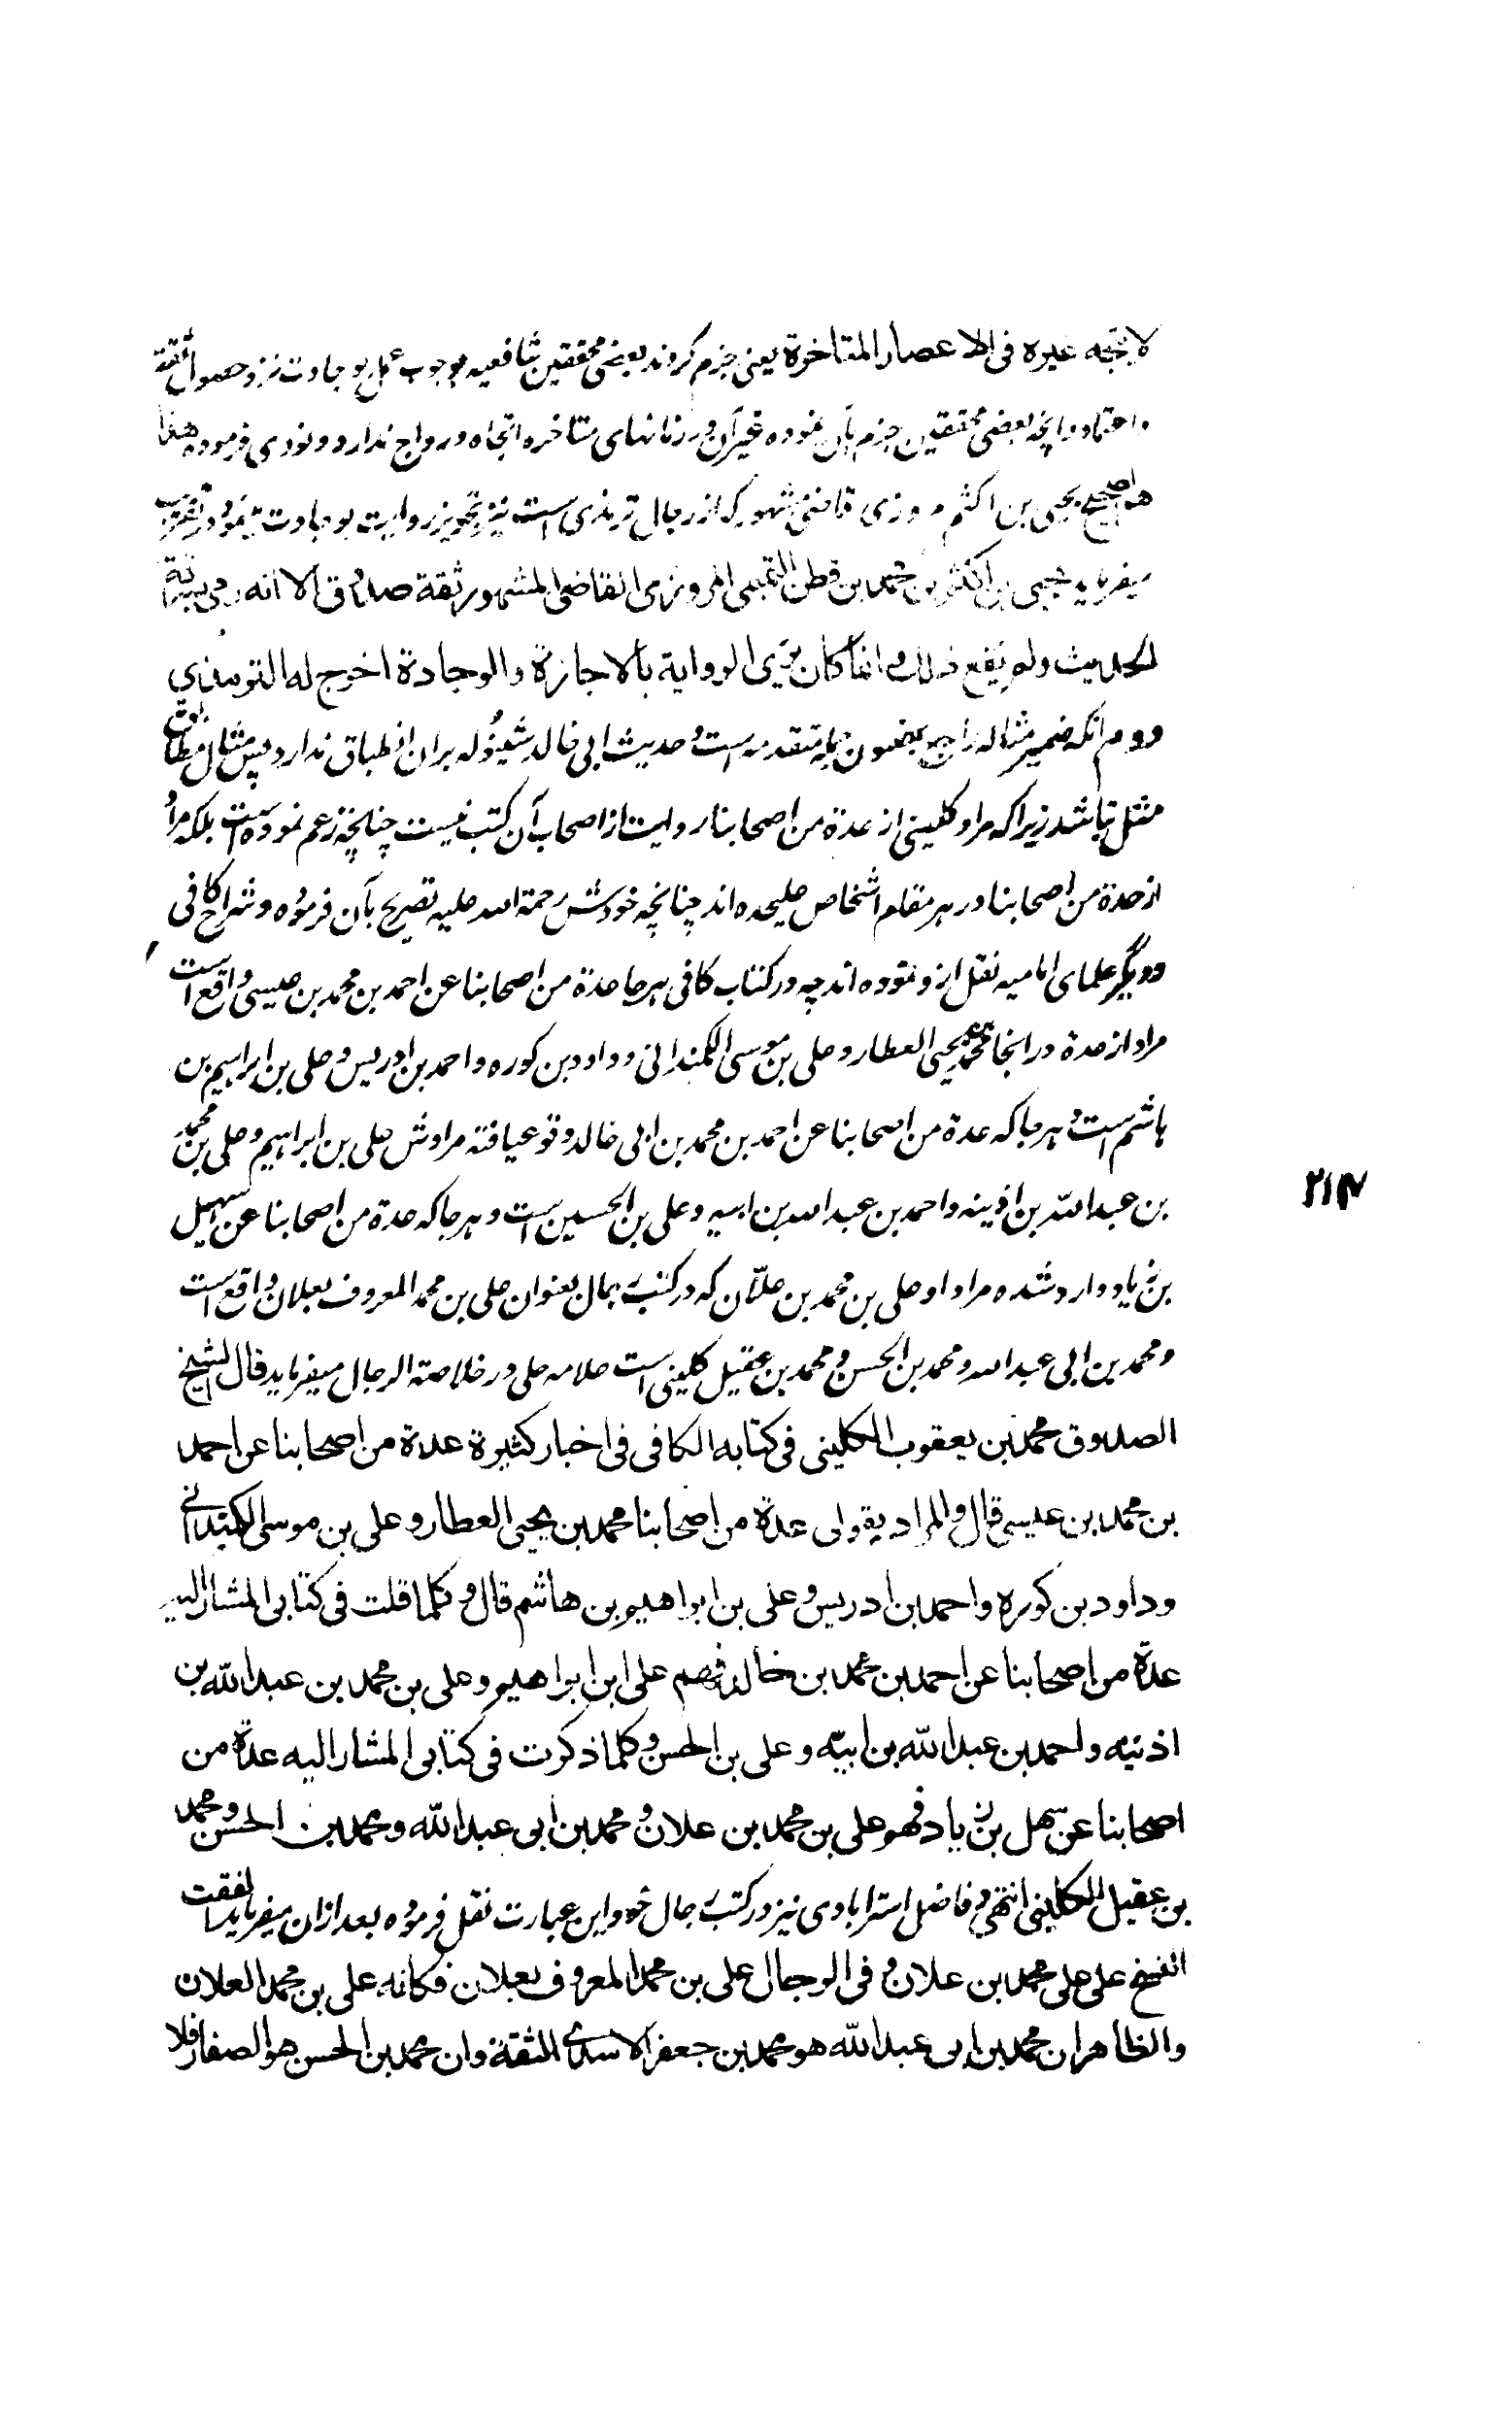 لا يتجه غيره فى الاعصار المتاخرة يعنى جزم كردند بعضى محققين شافعيه بوجوب عمل بوجادت نزد حصول ثقة
واعتماد وانچه بعضى محققين جزم بآن نموده غير آن در زمانهاى متاخره اتجاه ورواج ندارد ونووى فرموده هذا
هو الصحيح يحيى بن اكثم مروزى قاضى مشهور كه از رجال ترمذى است نيز تجويز روايت بوجادت مينمود در تقريب
ميفرمايد يحيى بن اكثم بن محمد بن قطن التميمى المروزى القاضى المشهور ثقة صدوق الا انه رمى بسرقة
الحديث ولم يقع ذلك وانما كان يرى الرواية بالاجازة والوجادة اخرج له الترمذي
دوم انكه ضمير مثاله راجع بمضمون جمله متقدمه است وحديث ابى خالد شينوله بران انطباق ندارد پس مثال مطابق
مثل نباشد زيرا كه مراد كلينى از عدة من اصحابنا روايت از اصحاب آن كتب نيست چنانچه زعم نموده است بلكه مراد
از عدة من اصحابنا در هر مقام اشخاص عليحده اند چنانچه خودش رحمة الله عليه تصريح بآن فرموده وشراح كافى
وديگر علماى اماميه نقل ازو نموده اند چه در كتاب كافى هر جا عدة من اصحابنا عن احمد بن محمد بن عيسى واقع است
مراد از عدة در انجا محمد بن يحيى العطار وعلى بن موسى الكمندانى وداود بن كوره واحمد بن ادريس وعلى بن ابراهيم بن
هاشم است وهر جا كه عدة من اصحابنا عن احمد بن محمد بن ابى خالد وقوع يافته مرادش على بن ابراهيم وعلى بن محمد
بن عبد الله بن اذينه واحمد بن عبد الله بن ابيه وعلى بن الحسين است وهر جا كه عدة من اصحابنا عن سهيل
بن زياد وارد شده مراد او على بن محمد بن علّان كه در كتب رجال بعنوان على بن محمد المعروف بعلان واقع است
ومحمد بن ابى عبد الله ومحمد بن الحسن ومحمد بن عقيل كلينى است علامه حلى در خلاصة الرجال ميفرمايد قال الشيخ
الصدوق محمد بن يعقوب الكلينى فى كتابه الكافى فى اخبار كثيرة عدة من اصحابنا عن احمد
بن محمد بن عيسى قال والمراد بقولى عدة من اصحابنا محمد بن يحيى العطار وعلى بن موسى الكمندانى
وداود بن كوره واحمد بن ادريس وعلى بن ابراهيم بن هاشم قال وكلما قلت فى كتابى المشار اليه
عدة من اصحابنا عن احمد بن محمد بن خالد فهم على ابن ابراهيم وعلى بن محمد بن عبد الله بن
اذينه واحمد بن عبد الله بن ابيه وعلى بن الحسن وكلما ذكرت فى كتابى المشار اليه عدة من
اصحابنا عن سهل بن زياد فهو على بن محمد بن علان ومحمد بن ابى عبد الله ومحمد بن الحسن ومحمد
بن عقيل الكلينى انتهى وفاضل استرابادى نيز در كتب رجال خود اين عبارت نقل فرموده بعد ازان ميفرمايد اتفقت
النسخ على على محمد بن علان وفى الرجال على بن محمد المعروف بعلان فكانه على بن محمد العلان
والظاهر ان محمد بن ابى عبد الله هو محمد بن جعفر الاسدى الثقة وان محمد بن الحسن هو الصفار فلا